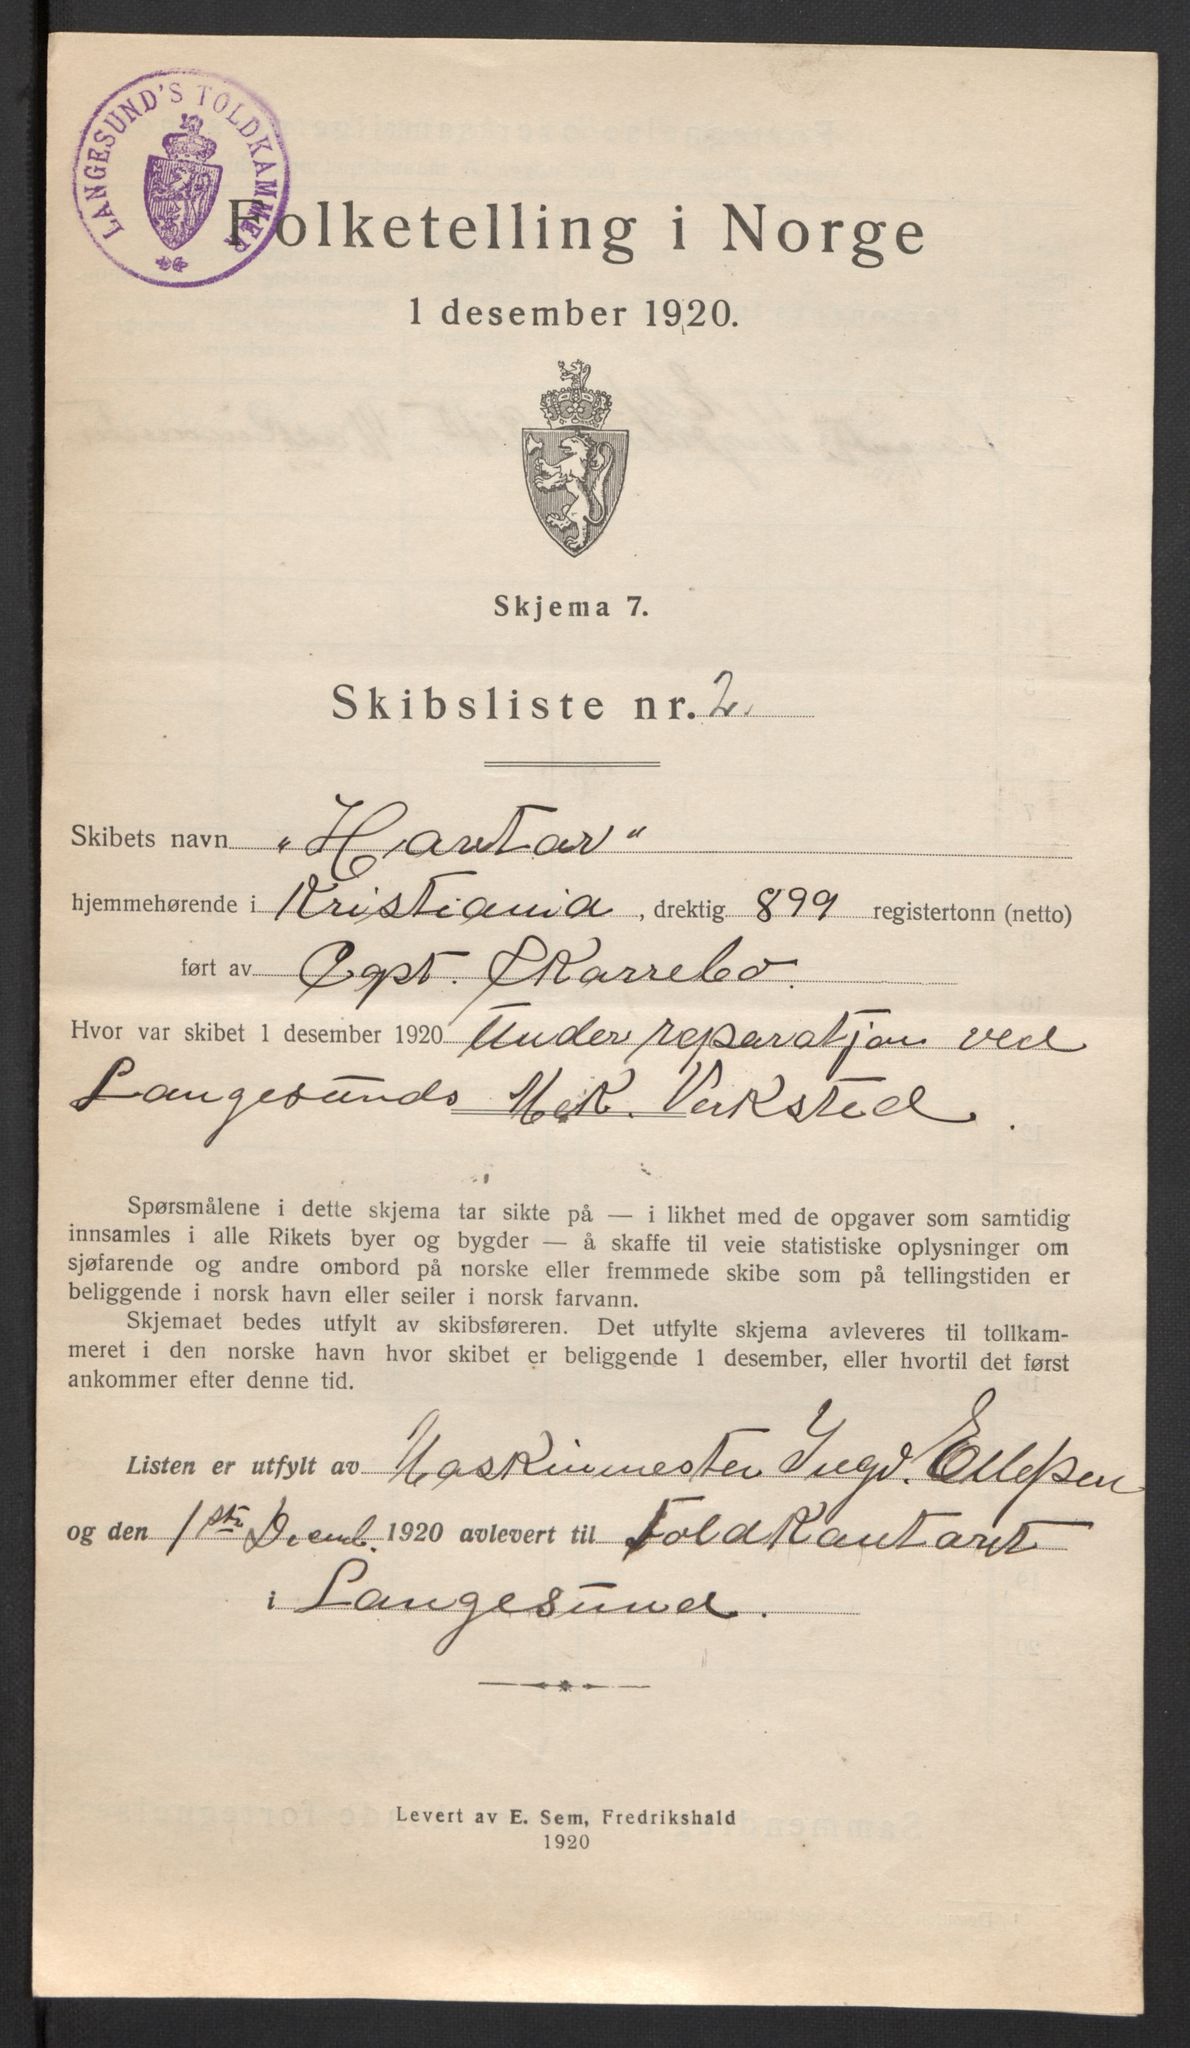 LANGESUND'S TOLDKAMMER
Folketelling i Norge
1 desember 1920.
Skjema 7.
Skibsliste nr. 2.
Skibets navn „Hartar"
hjemmehørende i Kristiania, drektig 899 registertonn (netto)
ført av Capt. Skarrebo.
Hvor var skibet 1 desember 1920 Under reparatjon ved
Langesunds Mek. Verksted.
Spørsmålene i dette skjema tar sikte på — i likhet med de opgaver som samtidig
innsamles i alle Rikets byer og bygder — å skaffe til veie statistiske oplysninger om
sjøfarende og andre ombord på norske eller fremmede skibe som på tellingstiden er
beliggende i norsk havn eller seiler i norsk farvann.
Skjemaet bedes utfylt av skibsføreren. Det utfylte skjema avleveres til tollkam-
meret i den norske havn hvor skibet er beliggende 1 desember, eller hvortil det først
ankommer efter denne tid.
Listen er utfylt av Maskinmester Ingv. Ellefsen
og den 1ste Decemb. 1920 avlevert til Toldkantoret
i Langesund.
Levert av E. Sem, Fredrikshald
1920